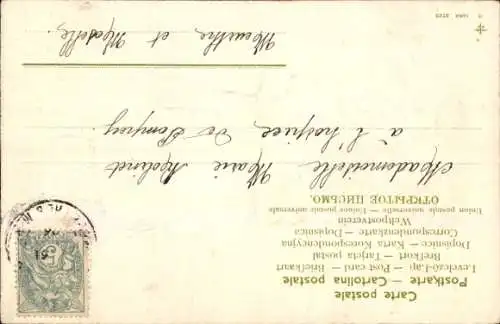 Carte postale
Postkarte — Cartolina postale
Levelező-Lap — Post card — Briefkaart
Brefkort — Tarjeta postal
Dopisnice — Karta Korespondencyjna
Correspondenzkarte — Dopisnica
Weltpostverein
Union postale universelle — Unione postale universale
ОТКРЫТОЕ ПИСЬМО.
Mademoiselle Marie Molinet
à l'hospice de Pompey
Meurthe et Moselle.